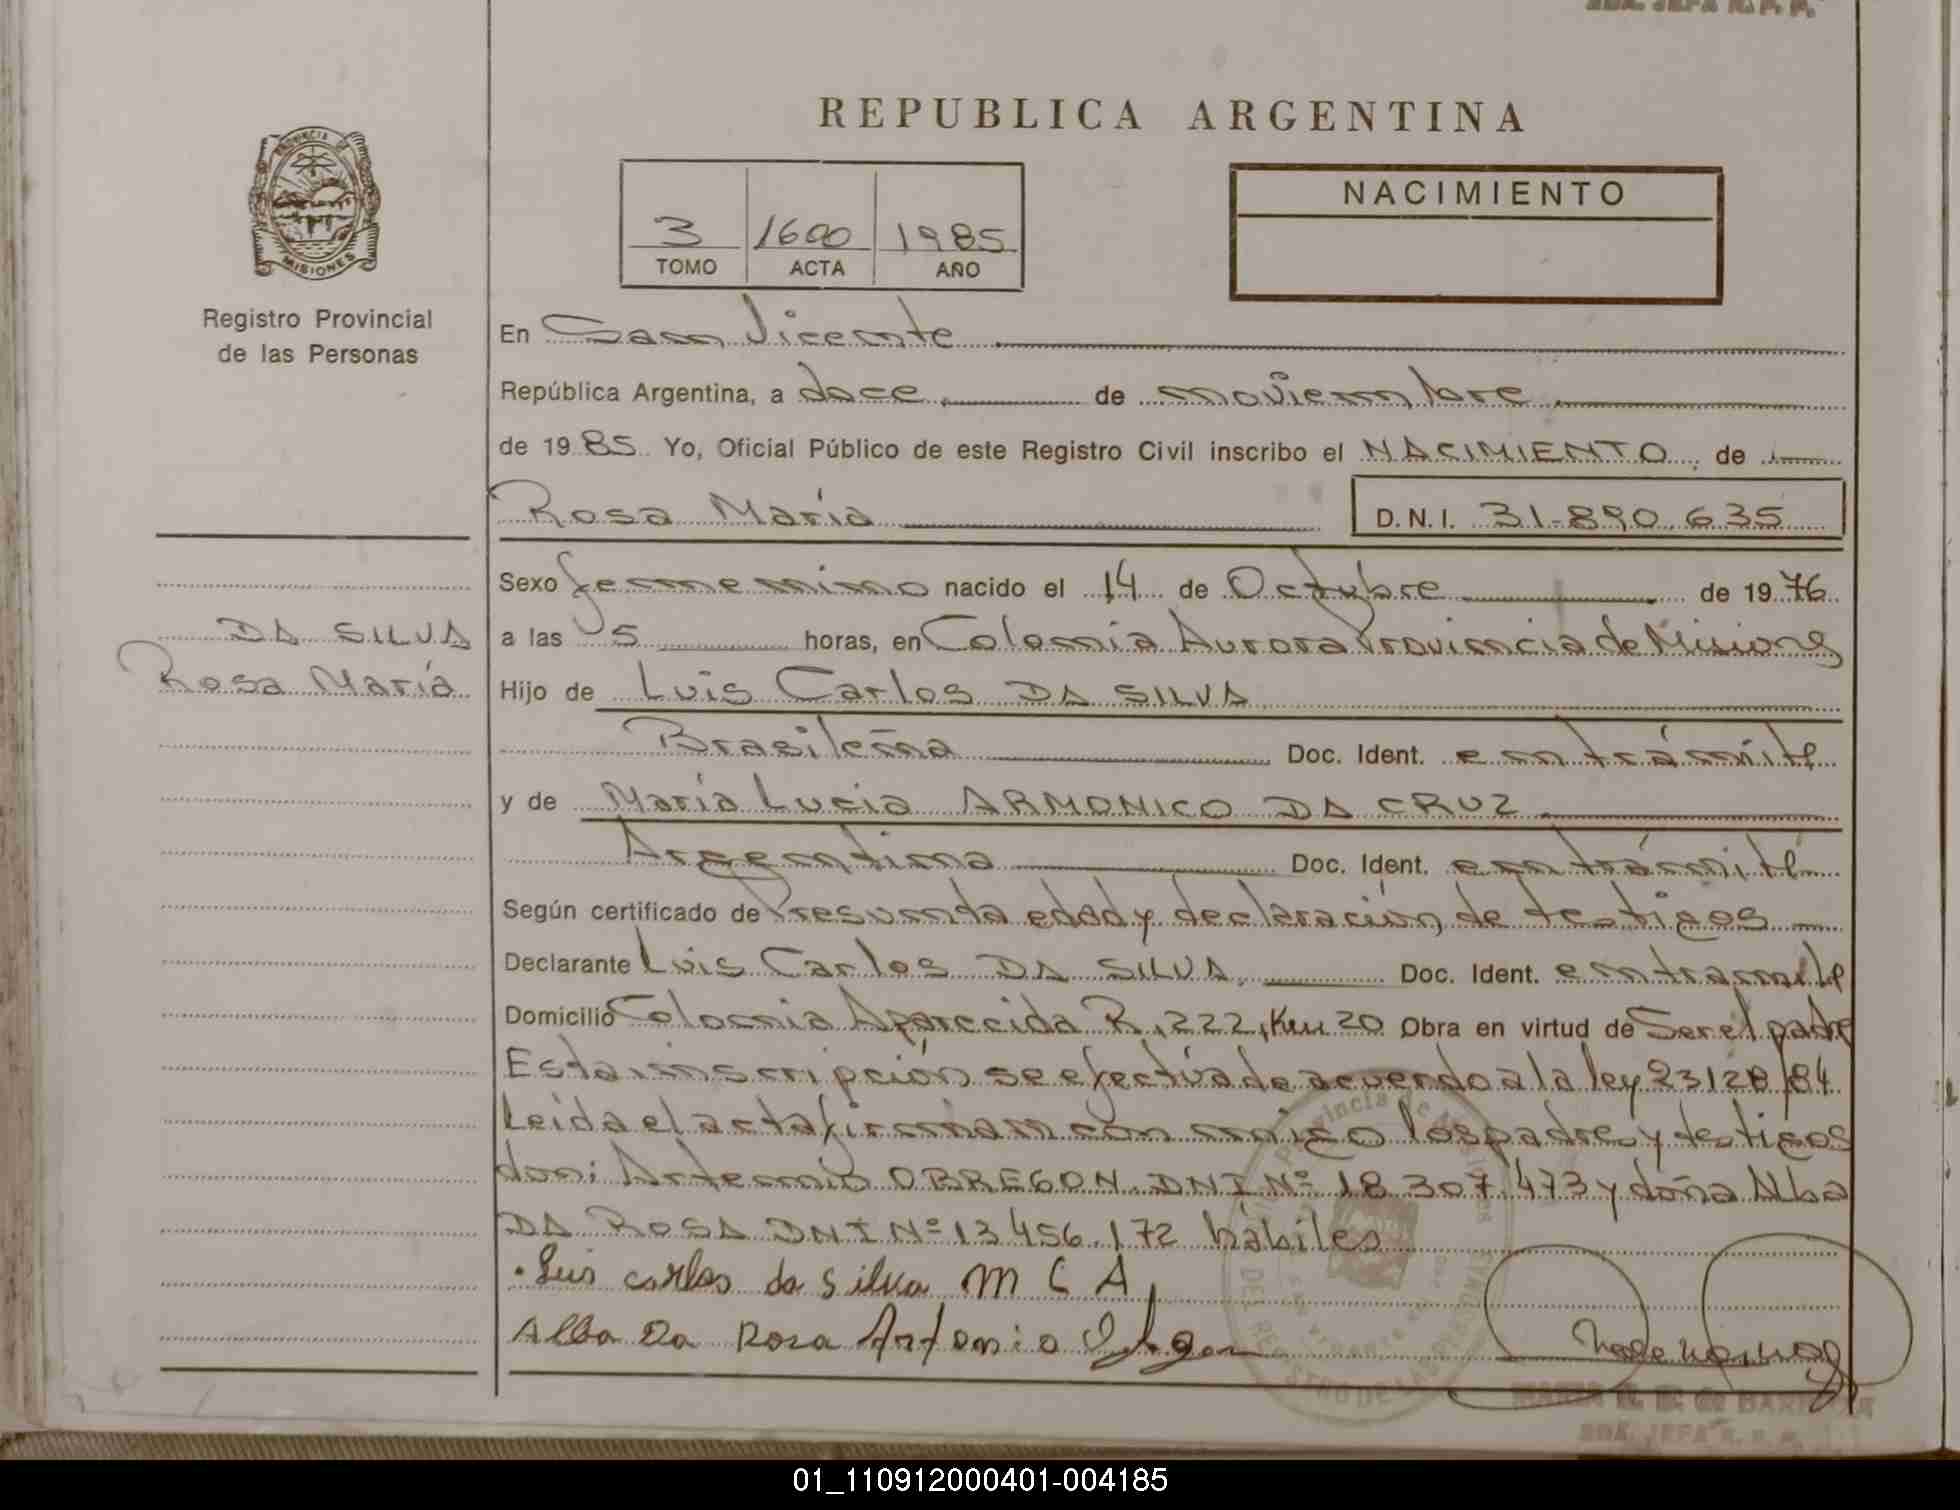 SDA. JEFA R. P. P.
REPUBLICA ARGENTINA
PROVINCIA DE
MISIONES
Registro Provincial
de las Personas
3 1600 1985
TOMO ACTA AÑO
NACIMIENTO
En San Vicente
República Argentina, a doce de noviembre
de 1985. Yo, Oficial Público de este Registro Civil inscribo el NACIMIENTO, de
Rosa María D.N.I. 31.890.635
Sexo femenino nacido el 14 de Octubre de 1976
a las 5 horas, en Colonia Aurora Provincia de Misiones
DA SILVA
Rosa María
Hijo de Luis Carlos DA SILVA
Brasileña Doc. Ident. en trámite
y de María Lucia ARMONICO DA CRUZ
Argentina Doc. Ident. en trámite
Según certificado de Presunta edad y declaración de testigos
Declarante Luis Carlos DA SILVA, Doc. Ident. en tramite
Domicilio Colonia Aparecida R. 222, Km 20 Obra en virtud de Ser el padre
Esta inscripción se efectúa de acuerdo a la ley 23128/84
Leida el acta firman con migo los padres y testigos
don: Artemio OBREGON DNI Nº 18 307.473 y doña Alba
DA ROSA DNI Nº 13 456.172 hábiles
Luis carlos da silva M C A
Alba Da Rosa Antonio
SDA. JEFA R. P. P.
01_110912000401-004185